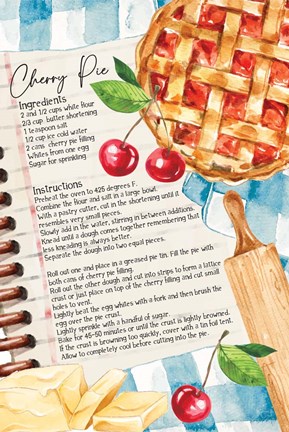 Cherry Pie
Ingredients
2 and 1/2 cups white flour
2/3 cup butter shortening
1 teaspoon salt
1/2 cup ice cold water
2 cans cherry pie filling
Whites from one egg
Sugar for sprinkling
Instructions
Preheat the oven to 425 degrees F.
Combine the flour and salt in a large bowl.
With a pastry cutter, cut in the shortening until it
resembles very small pieces.
Slowly add in the water, stirring in between additions.
Knead until a dough comes together remembering that
less kneading is always better.
Separate the dough into two equal pieces.
Roll out one place in a greased pie tin. Fill the pie with
both cans of cherry pie filling.
Roll out the other dough and cut into strips to form a lattice
crust or just place on top of the cherry filling and cut small
holes to vent.
Lightly beat the egg whites with a fork and then brush the
egg over the pie crust.
Lightly sprinkle with a handful of sugar.
Bake for 45-50 minutes or until the crust is lightly browned.
If the crust is browning too quickly, cover with a tin foil tent.
Allow to completely cool before cutting into the pie.